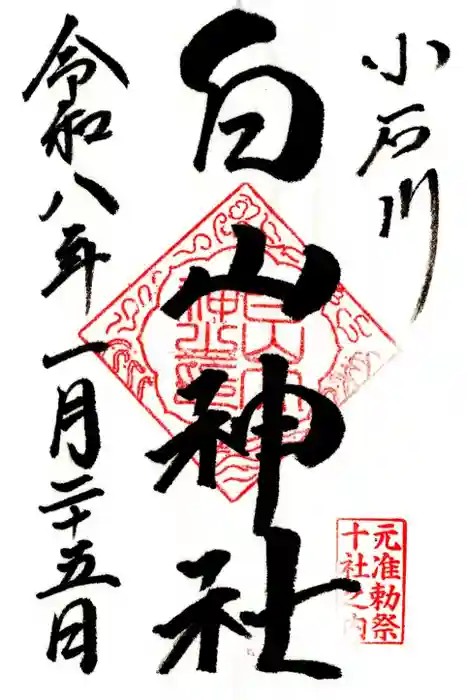 小石川
白山神社
元准勅祭
十社之内
令和八年一月二十五日